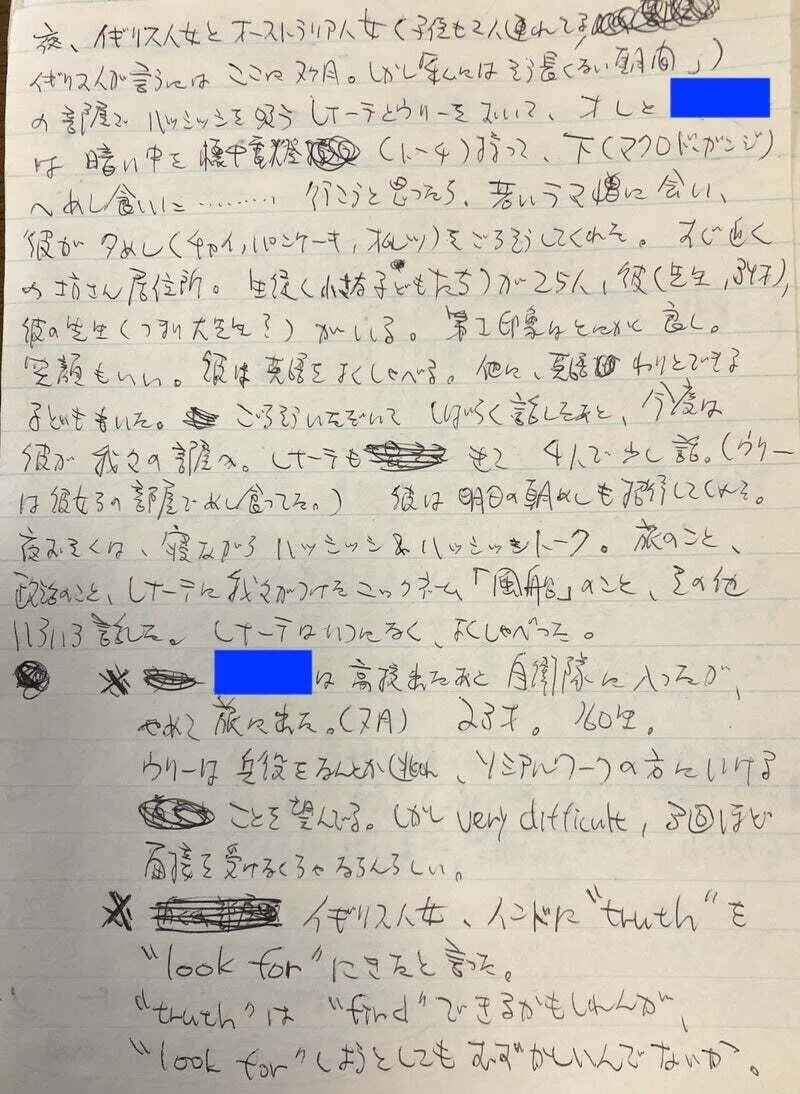 夜、イギリス人女とオーストラリア人女(子供も2人連れてる
イギリス人が言うにはここに2ヶ月。しかし「私にはそう長くない期間」)
の部屋でハッシッシを吸うレナーテとウリーをおいて、オレと
は暗い中を懐中電燈(トーチ)持って、下(マクロードガンジ)
へめし食いに………行こうと思ったら、若いラマ僧に会い、
彼が夕めし(チャイ,パンケーキ,オムレツ)をごちそうしてくれた。すぐ近く
の坊さん居住所。生徒(小さな子どもたち)が25人,彼(先生,34才),
彼の先生(つまり大先生?)がいる。第1印象はとにかく良し。
笑顔もいい。彼は英語をよくしゃべる。他に、英語わりとできる
子どももいた。ごちそういただいてしばらく話したあと、今度は
彼が我々の部屋へ。レナーテも来て4人で少し話。(ウリー
は彼女らの部屋でめし食ってた。)彼は明日の朝めしも招待してくれた。
夜おそくは、寝ながらハッシッシ&ハッシッシトーク。旅のこと、
政治のこと,レナーテに我々がつけたニックネーム「風船」のこと、その他
いろいろ話した。レナーテはいつになく、よくしゃべった。
※ は高校出たあと自衛隊に入ったが、
やめて旅に出た。(2月) 23才。160cm。
ウリーは兵役をなんとか逃れ、ソシアルワークの方にいける
ことを望んでる。しかしvery difficult, 3回ほど
面接を受けなくちゃならんらしい。
※ イギリス人女、インドに"truth"を
"look for"にきたと言った。
"truth"は"find"できるかもしれんが、
"look for"しようとしてもむずかしいんでないか。